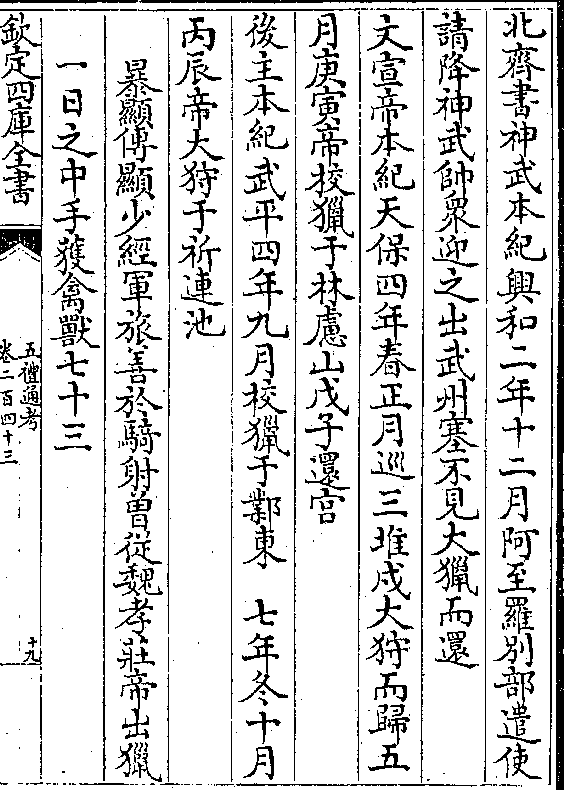 北齊書神武本紀興和二年十二月阿至羅別部遣使
請降神武帥衆迎之出武州塞不見大獵而還
文宣帝本紀天保四年春正月巡三堆戍大狩而歸五
月庚寅帝校獵于林慮山戊子還宫
後主本紀武平四年九月校獵于鄴東　七年冬十月
丙辰帝大狩于祈連池
暴顯傳顯少經軍旅善於騎射曽從魏孝莊帝出獵
一日之中手獲禽獸七十三
欽定四庫全書
五禮通考
卷二百四十三
十九